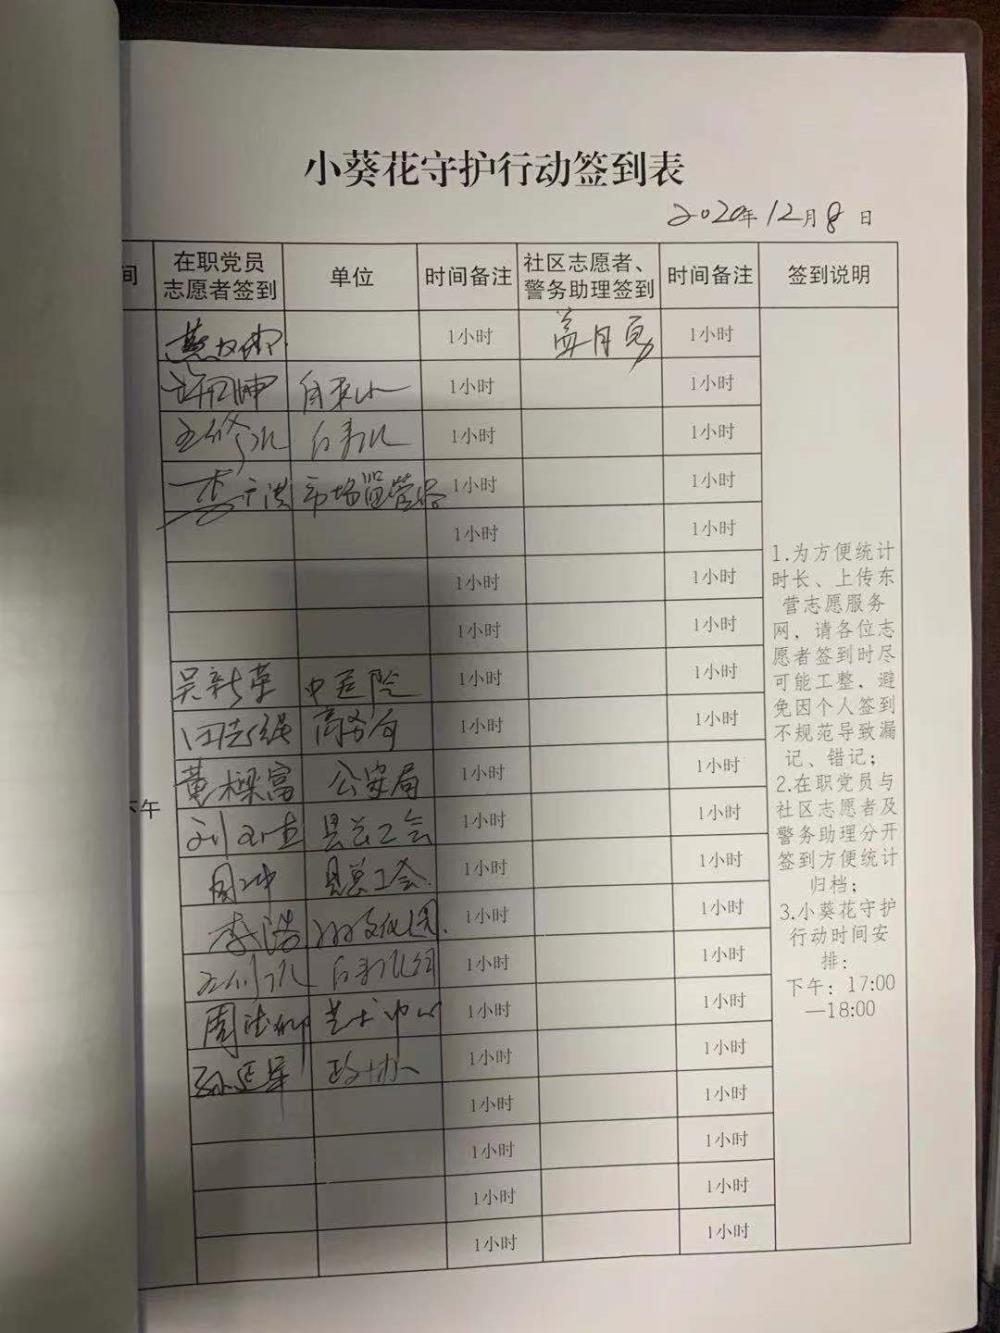 小葵花守护行动签到表
2020年12月8日
间
在职党员
志愿者签到
单位
时间备注
社区志愿者、
警务助理签到
时间备注
签到说明
1小时
盖月勇
1小时
自来水
1小时
1小时
1小时
1小时
市场监管局
1小时
1小时
1小时
1小时
1小时
1小时
1小时
1小时
吴新荣
中医院
1小时
1小时
汪志强
商务局
1小时
1小时
下午
董樑富
公安局
1小时
1小时
县总工会
1小时
1小时
周冲
县总工会
1小时
1小时
李浩
1小时
1小时
1小时
1小时
艺术中心
1小时
1小时
孙延军
政协
1小时
1小时
1小时
1小时
1小时
1小时
1小时
1小时
1小时
1小时
1.为方便统计
时长、上传东
营志愿服务
网，请各位志
愿者签到时尽
可能工整，避
免因个人签到
不规范导致漏
记、错记；
2.在职党员与
社区志愿者及
警务助理分开
签到方便统计
归档；
3.小葵花守护
行动时间安
排：
下午：17:00
—18:00